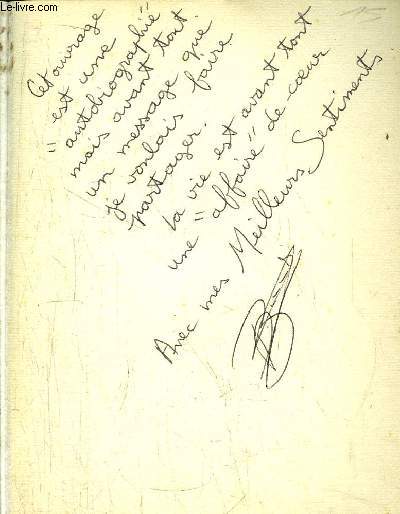 Le-livre.com
15
Cet ouvrage
est une
"autobiographie"
mais avant tout
un message que
je voulais faire
partager.
La vie est avant tout
une "affaire" de cœur
Avec mes Meilleurs Sentiments